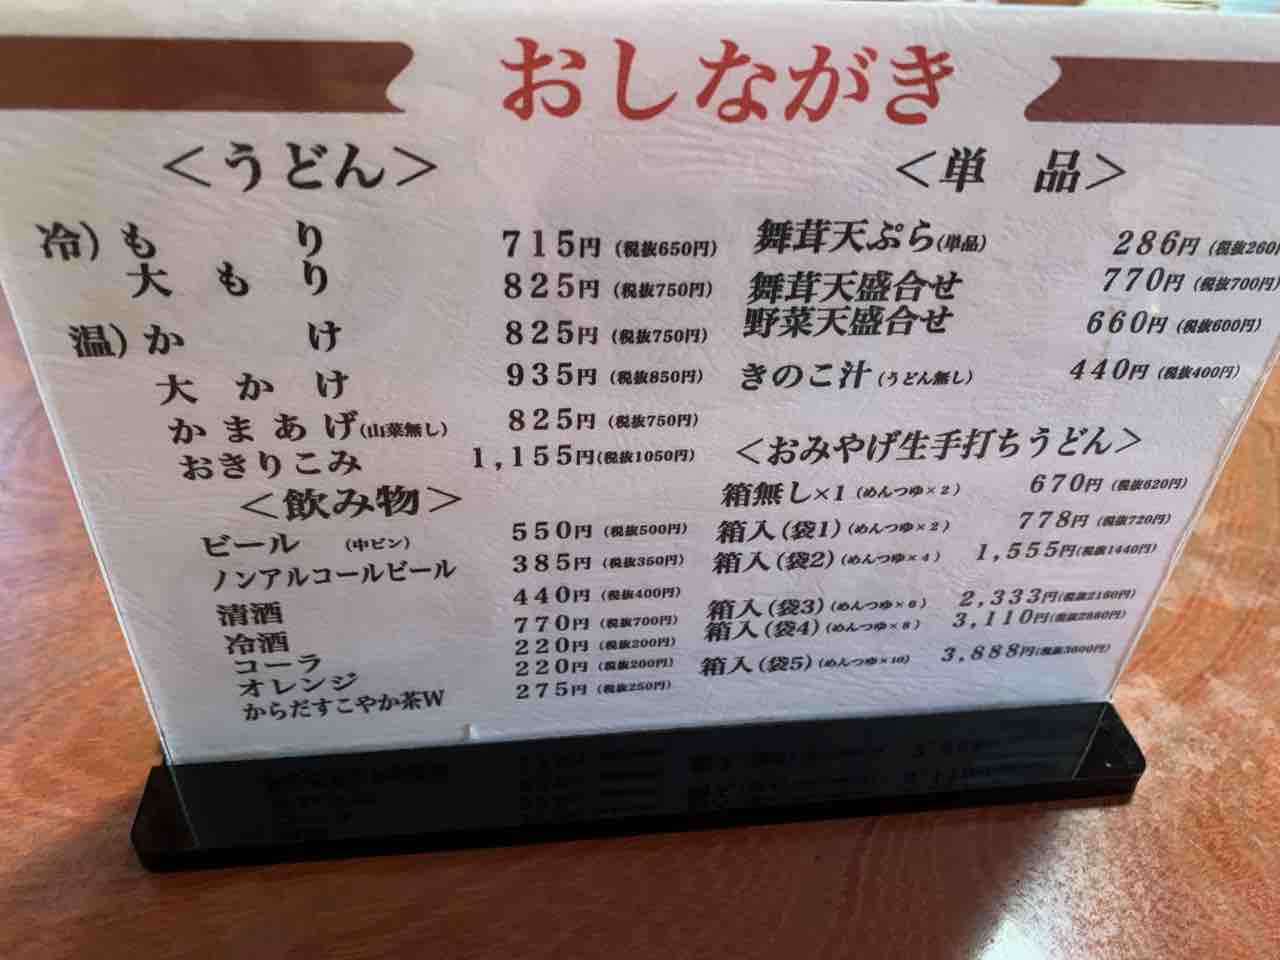 おしながき
＜うどん＞
冷）もり 715円（税抜650円）
大もり 825円（税抜750円）
温）かけ 825円（税抜750円）
大かけ 935円（税抜850円）
かまあげ（山菜無し） 825円（税抜750円）
おきりこみ 1,155円（税抜1050円）
＜飲み物＞
ビール （中ビン） 550円（税抜500円）
ノンアルコールビール 385円（税抜350円）
清酒 440円（税抜400円）
冷酒 770円（税抜700円）
コーラ 220円（税抜200円）
オレンジ 220円（税抜200円）
からだすこやか茶W 275円（税抜250円）
＜単品＞
舞茸天ぷら（単品） 286円（税抜260円
舞茸天盛合せ 770円（税抜700円）
野菜天盛合せ 660円（税抜600円）
きのこ汁（うどん無し） 440円（税抜400円）
＜おみやげ生手打ちうどん＞
箱無し×1（めんつゆ×2） 670円（税抜620円）
箱入（袋1）（めんつゆ×2） 778円（税抜720円）
箱入（袋2）（めんつゆ×4） 1,555円（税抜1440円）
箱入（袋3）（めんつゆ×6） 2,333円（税抜2160円）
箱入（袋4）（めんつゆ×8） 3,110円（税抜2880円）
箱入（袋5）（めんつゆ×10） 3,888円（税抜3600円）